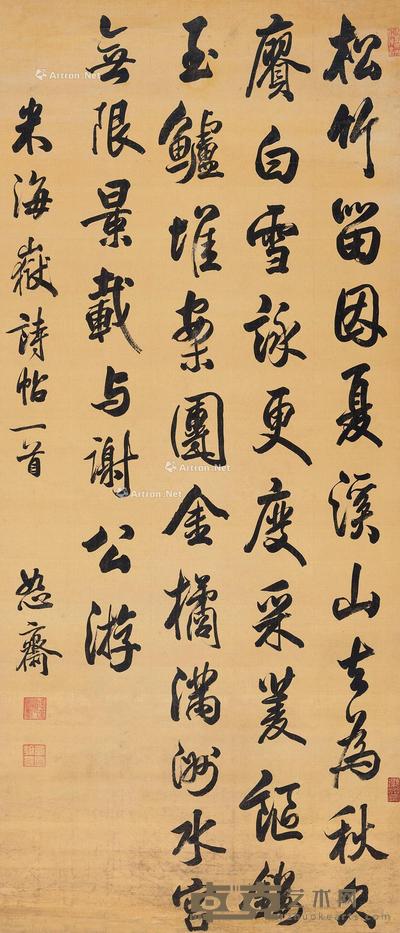 松竹留因夏溪山去為秋久
賡白雪詠更度采菱謳縷
玉鱸堆案團金橘滿洲水宮
無限景載与謝公游
米海嶽詩帖一首 恕齋
Artron.Net
Artron.Net
Artron.Net
Artron.Net